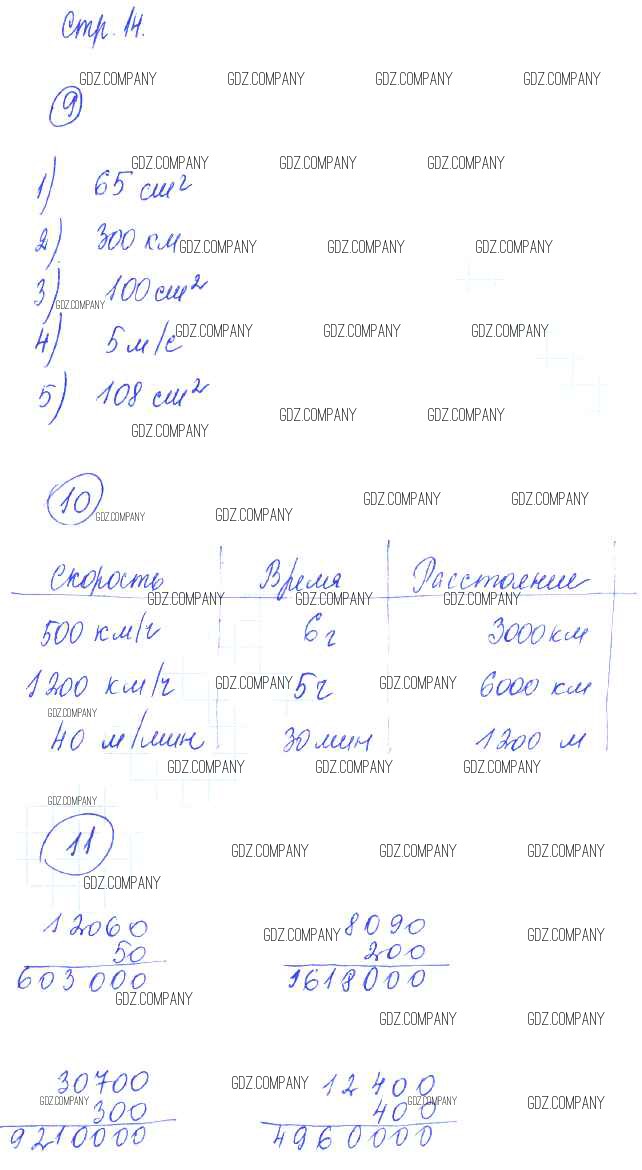 Стр. 14.
GDZ.COMPANY GDZ.COMPANY GDZ.COMPANY GDZ.COMPANY
9
GDZ.COMPANY GDZ.COMPANY GDZ.COMPANY
1) 65 см²
2) 300 км GDZ.COMPANY GDZ.COMPANY GDZ.COMPANY
3) 100 см²
GDZ.COMPANY
4) 5 м/с GDZ.COMPANY GDZ.COMPANY GDZ.COMPANY
5) 108 см²
GDZ.COMPANY GDZ.COMPANY GDZ.COMPANY
10 GDZ.COMPANY GDZ.COMPANY GDZ.COMPANY GDZ.COMPANY
Скорость Время Расстояние
GDZ.COMPANY GDZ.COMPANY GDZ.COMPANY
500 км/ч 6 ч 3000 км
1200 км/ч GDZ.COMPANY 5 ч GDZ.COMPANY 6000 км
GDZ.COMPANY
40 м/мин 30 мин 1200 м
GDZ.COMPANY GDZ.COMPANY GDZ.COMPANY
GDZ.COMPANY
11 GDZ.COMPANY GDZ.COMPANY GDZ.COMPANY
GDZ.COMPANY
12060 8090
GDZ.COMPANY GDZ.COMPANY
50 200
603000 1618000
GDZ.COMPANY
GDZ.COMPANY GDZ.COMPANY
30700 GDZ.COMPANY 12400
GDZ.COMPANY GDZ.COMPANY GDZ.COMPANY
300 400
9210000 4960000